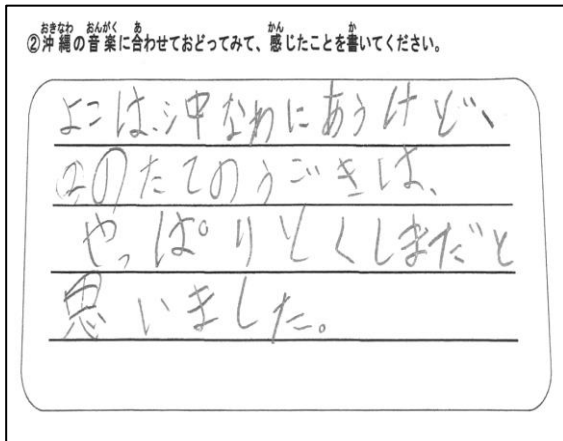 ②沖縄の音楽に合わせておどってみて、感じたことを書いてください。
よこは、沖なわにあうけど、
②のたてのうごきは、
やっぱりとくしまだと
思いました。